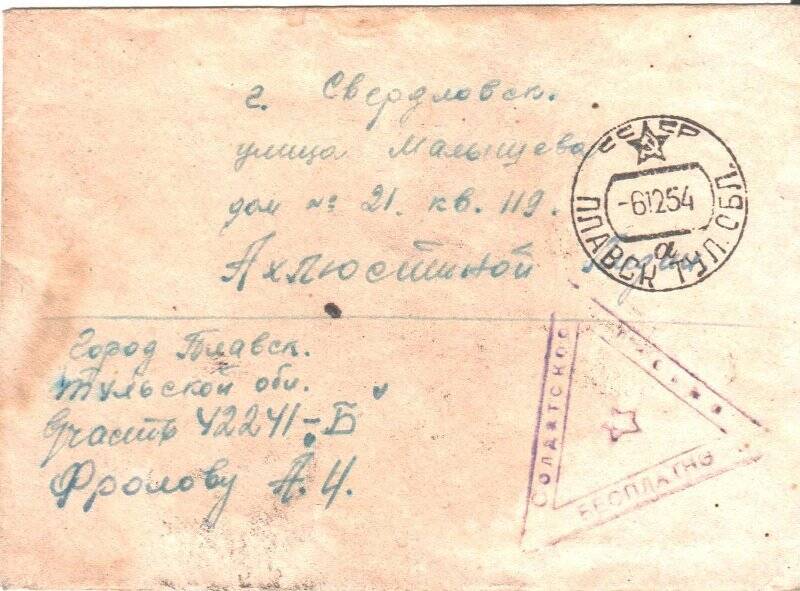 г. Свердловск.
улица Малышева
дом № 21. кв. 119.
Ахлюстиной
СССР
-61254
а
ПЛАВСК ТУЛ. ОБЛ.
Город Плавск.
Тульской обл.
В/часть 42241-Б
Фролову А. И.
СОЛДАТСКОЕ
БЕСПЛАТНО